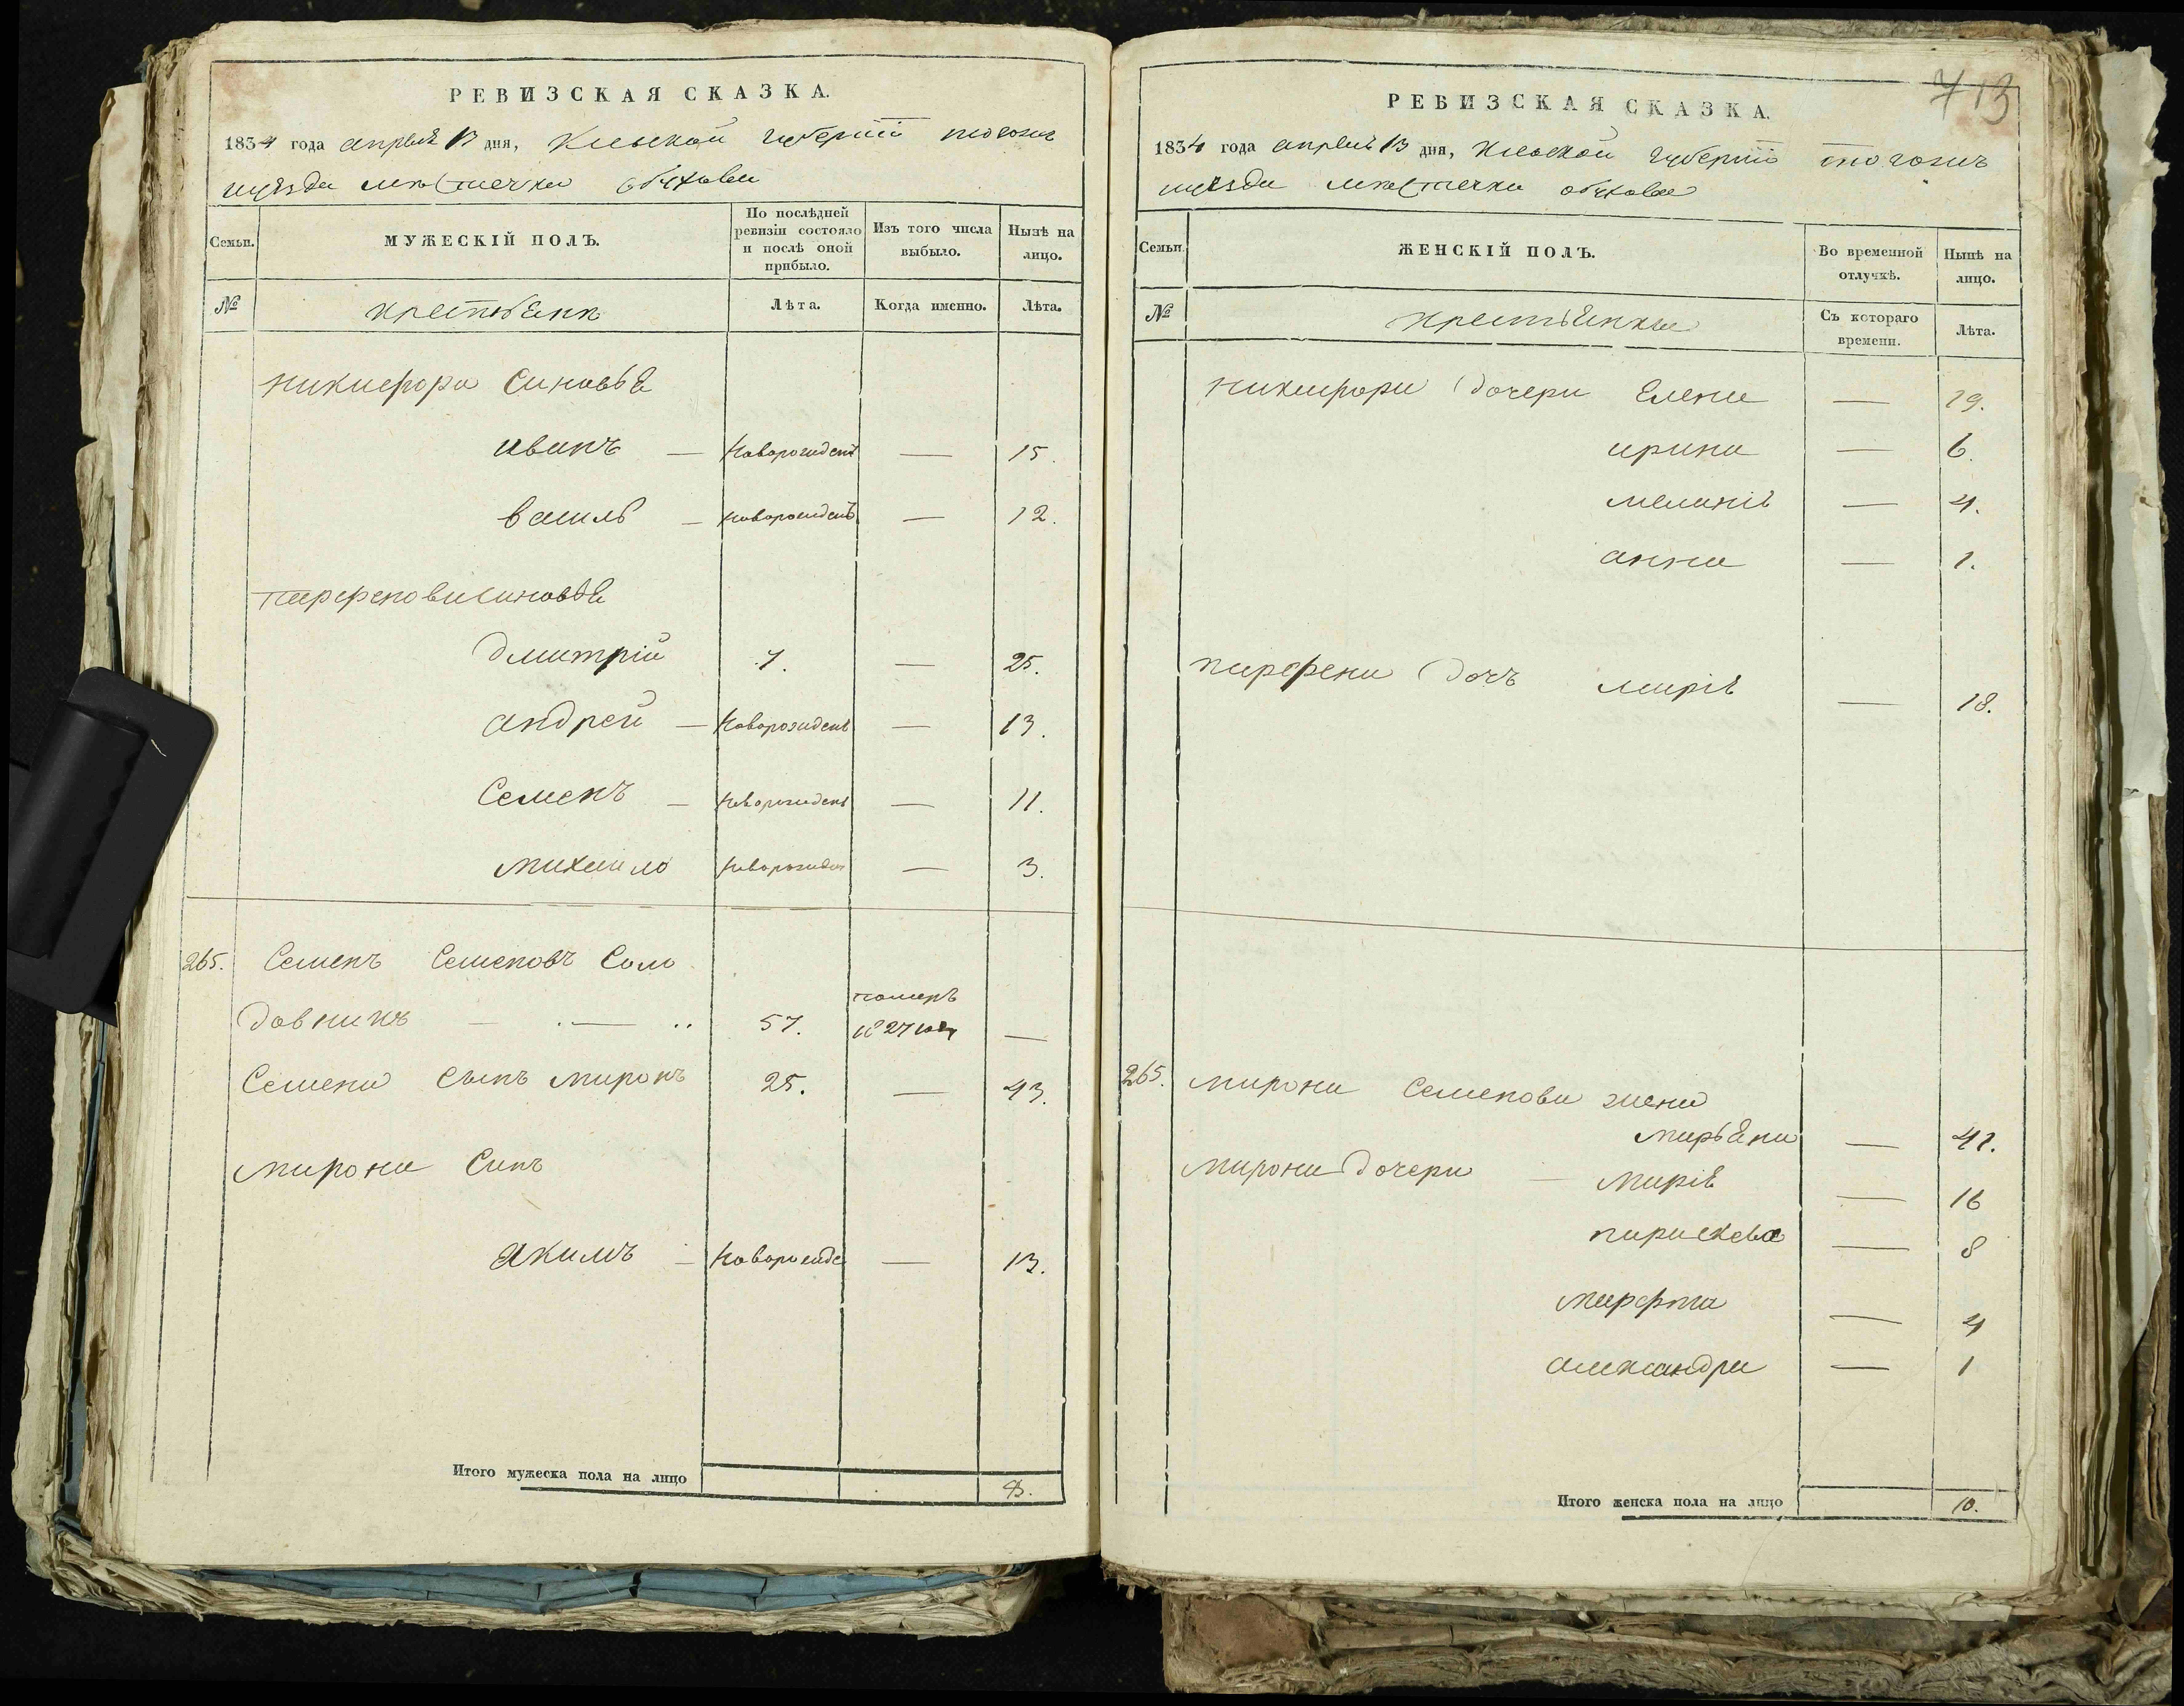 РЕВИЗСКАЯ СКАЗКА.
1834 года апреля 13 дня, Киевской губернїи тогожъ
уезда местечка обухова
Семьи.
МУЖЕСКІЙ ПОЛЪ.
По послѣдней ревизіи состояло и послѣ оной прибыло.
Изъ того числа выбыло.
Нынѣ на лицо.
№
крестьяни
Лѣта.
Когда именно.
Лѣта.
никифора синовья
иванъ — новорожденъ — 15.
василь — новорожденъ — 12.
парфенова синовья
дмитрій 7. — 25.
андрей — новорожденъ — 13.
Семенъ — новорожденъ — 11.
михаило новорожден — 3.
265. Семенъ Семеновъ Соло
довникъ — 57. померъ 1827 —
Семена сынъ миронъ 25. — 43.
мирона синъ
Якимъ — новорожде — 13.
Итого мужеска пола на лицо
8.
713
РЕВИЗСКАЯ СКАЗКА.
1834 года апреля 13 дня, Киевской губернїи тогожъ
уезда местечка обухова
Семьи.
ЖЕНСКІЙ ПОЛЪ.
Во временной отлучкѣ.
Нынѣ на лицо.
№
крестьянки
Съ котораго времени.
Лѣта.
никифора дочери Елена — 19.
ирина — 6.
меланія — 4.
анна — 1.
парфена дочъ марія — 18.
265. мирона Семенова жена
марьяна — 41.
мирона дочери — марія — 16
параскева — 8
марфта — 4
александра — 1
Итого женска пола на лицо
10.